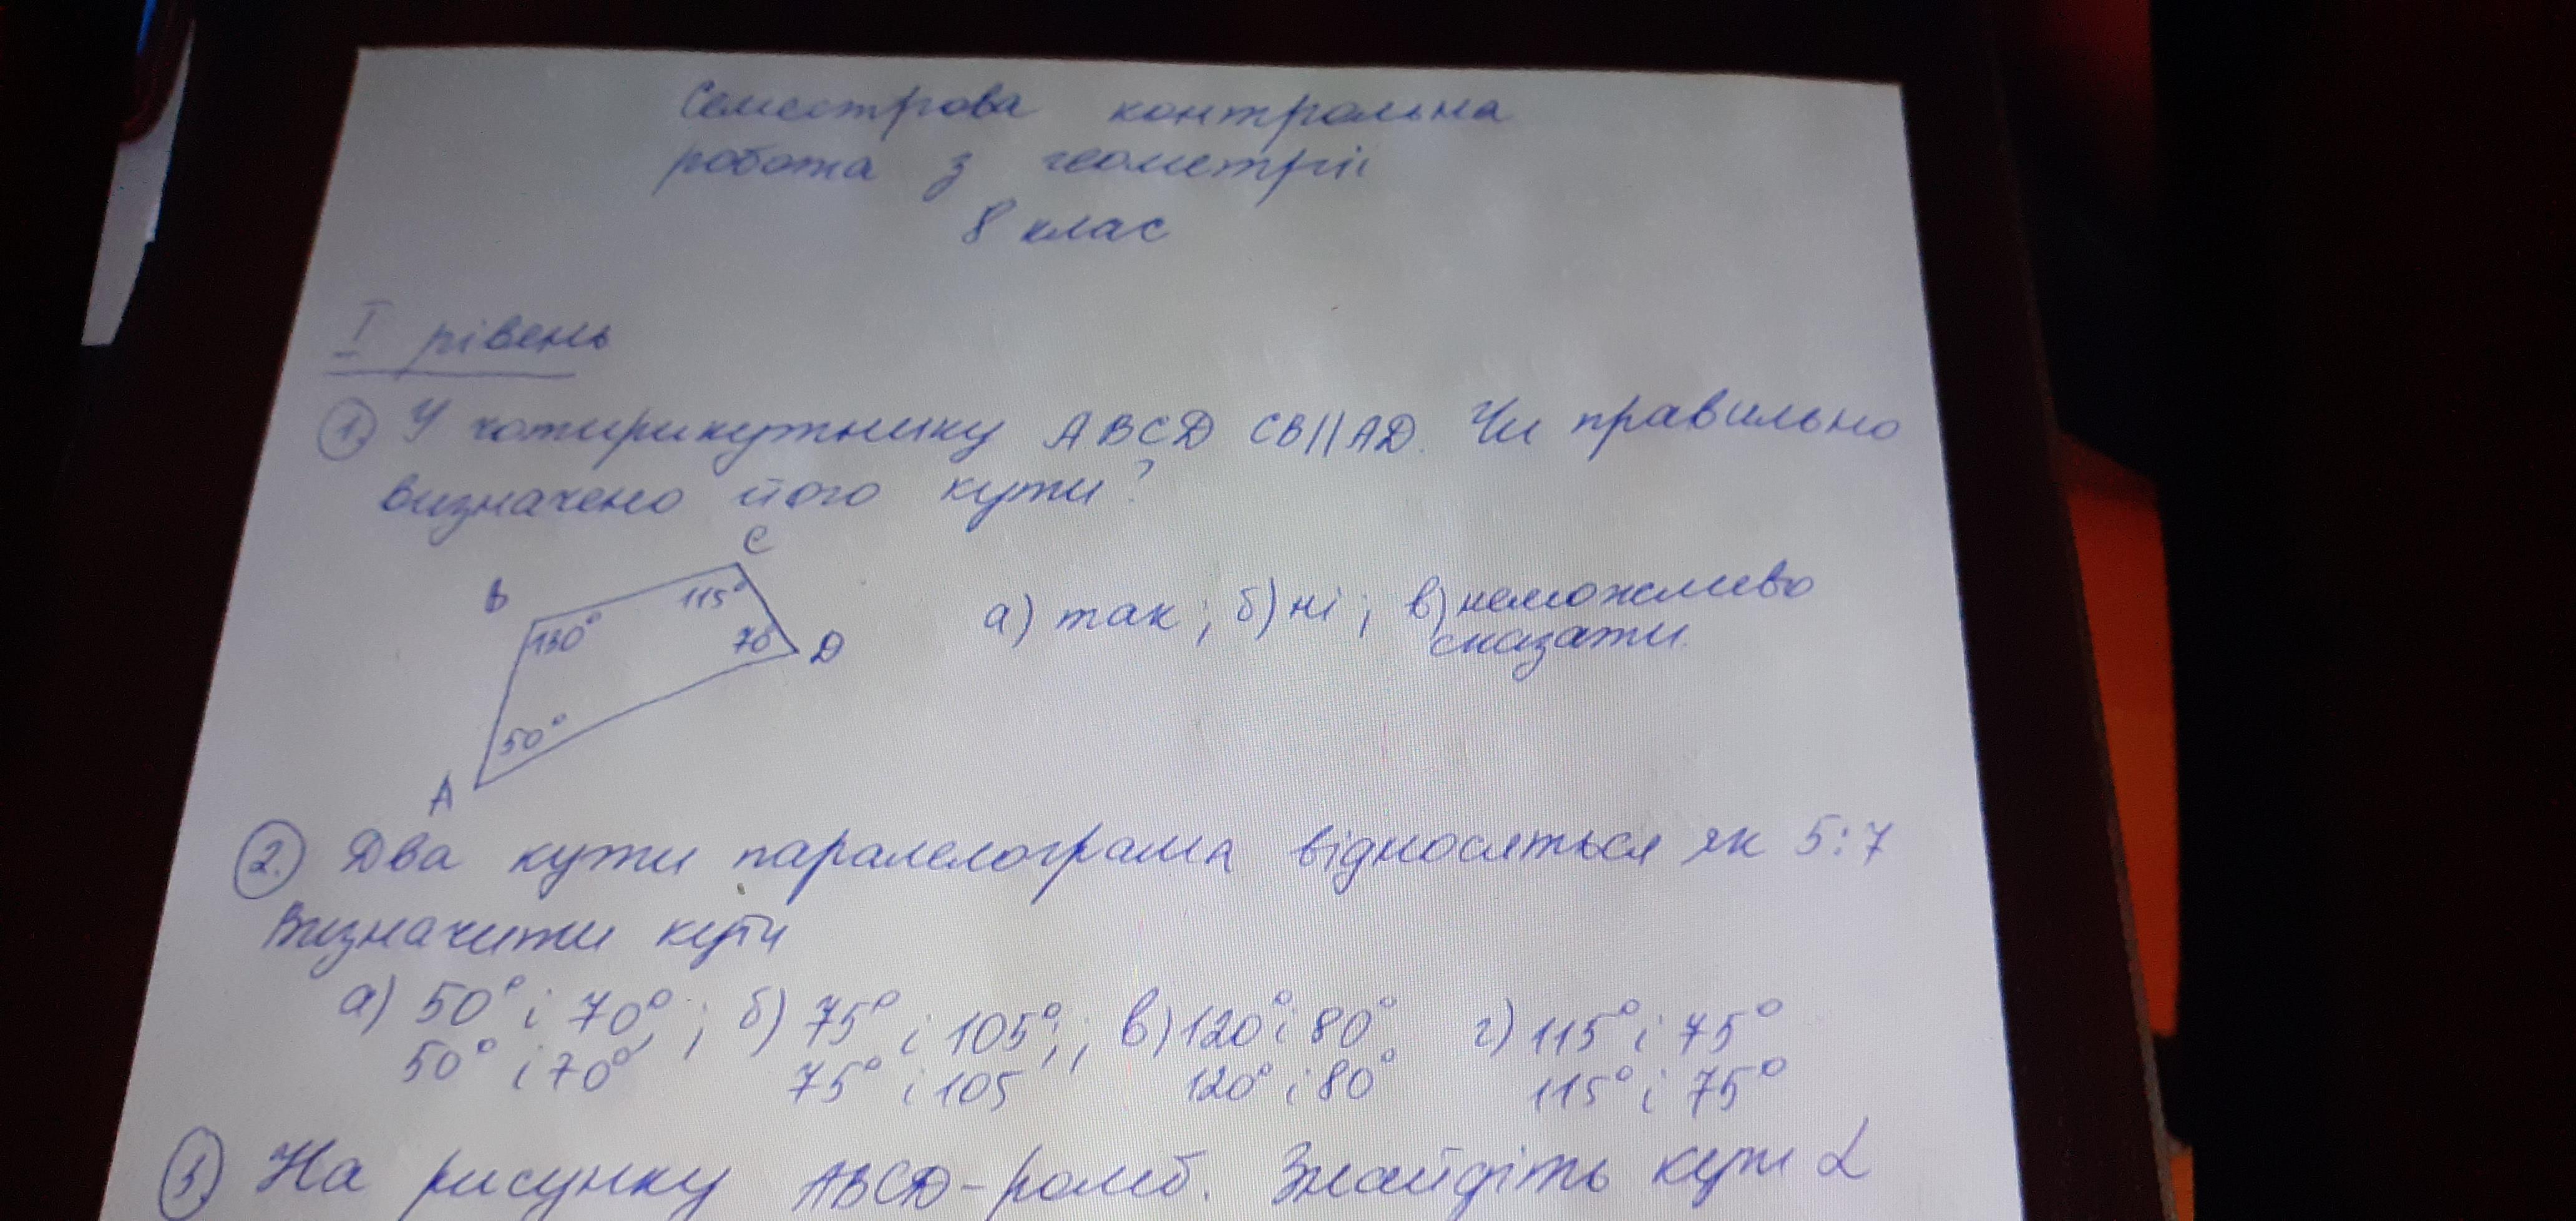 Семестрова контрольна
робота з геометрії
8 клас
I рівень
1. У чотирикутнику ABCD CB||AD. Чи правильно
визначено його кути?
C
B
115°
130°
70
D
50°
A
а) так; б) ні; в) неможливо
сказати.
2. Два кути паралелограма відносяться як 5:7
Визначити кути
а) 50° і 70°; б) 75° і 105°; в) 120° і 80° г) 115° і 75°
50° і 70° 75° і 105 120° і 80° 115° і 75°
3. На рисунку ABCD - ромб. Знайдіть кут α